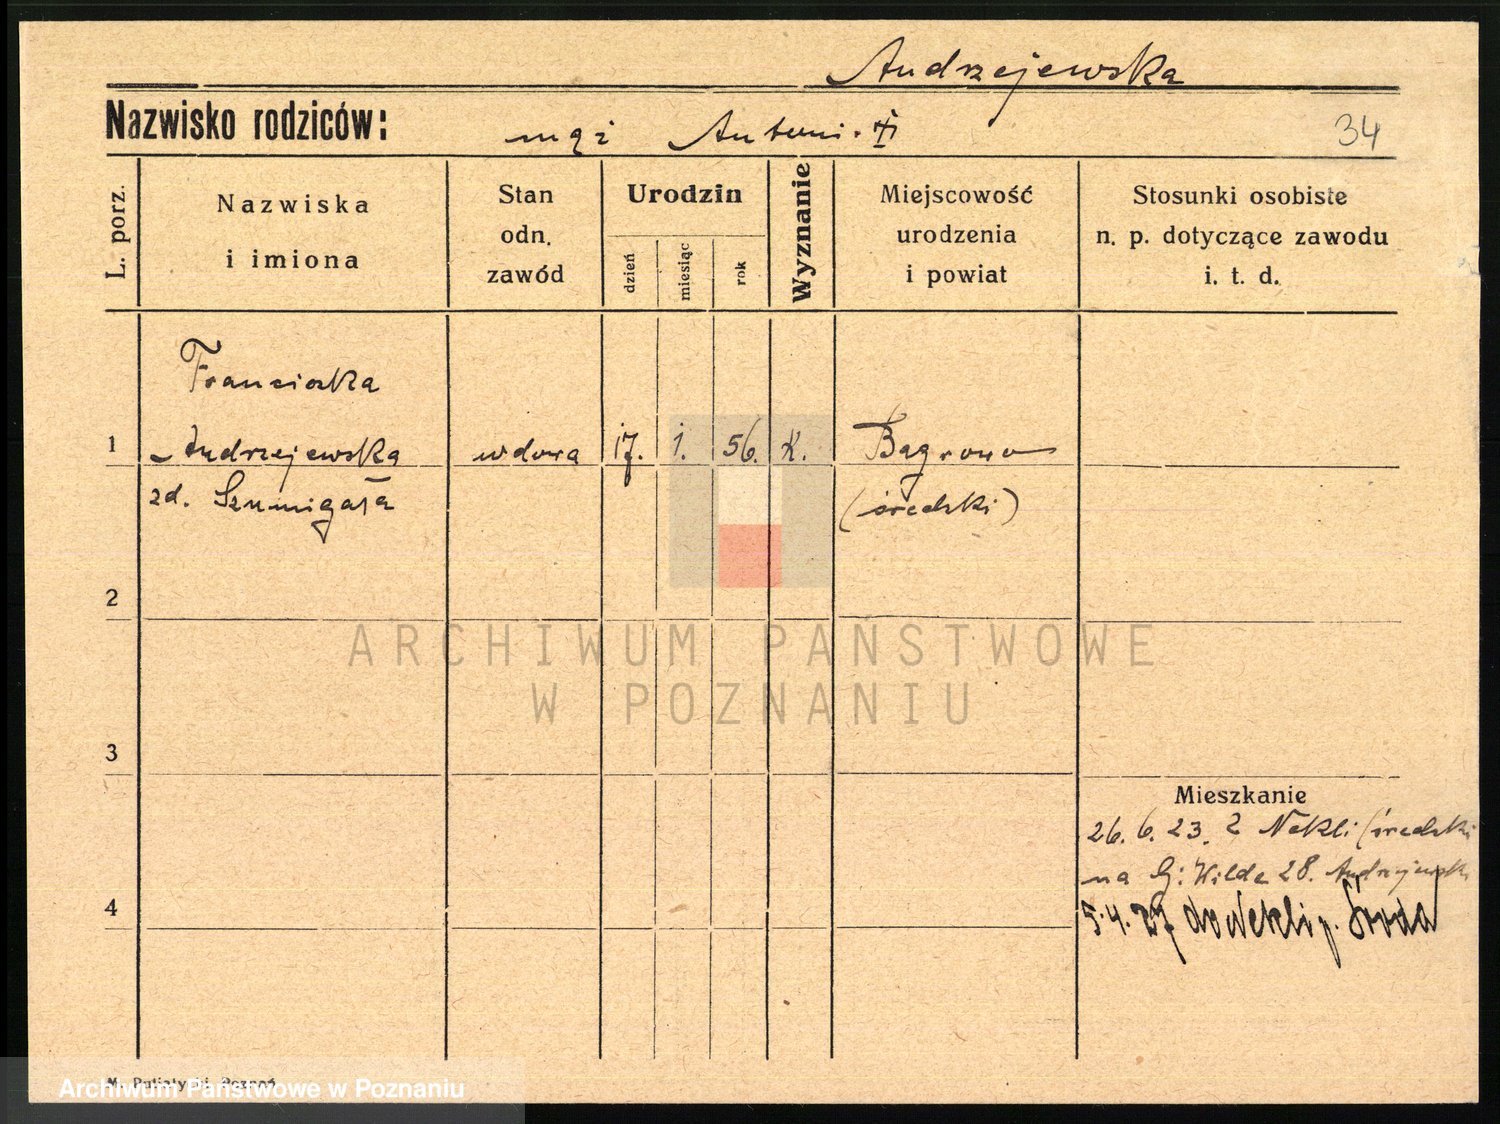 Andrzejewska
Nazwisko rodziców:
mąż Antoni
34
L. porz.
Nazwiska
i imiona
Stan
odn.
zawód
Urodzin
dzień
miesiąc
rok
Wyznanie
Miejscowość
urodzenia
i powiat
Stosunki osobiste
n. p. dotyczące zawodu
i. t. d.
Franciszka
1 Andrzejewska wdowa 17. 1. 56. K. Bagrowo
zd. Szumigała (średzki)
2
3
4
ARCHIWUM PAŃSTWOWE
W POZNANIU
Mieszkanie
26. 6. 23. z Nekli (średzki
na G. Wilda 28. Andrzejewsk
5.4.27 do Nekli p. Środa
Archiwum Państwowe w Poznaniu